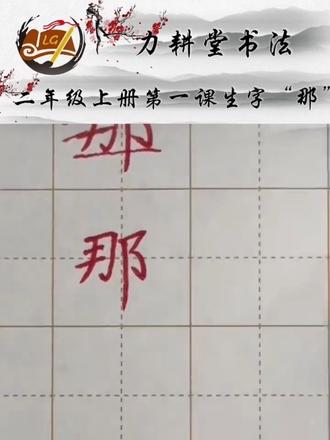 LG
力耕堂书法
二年级上册第一课生字“那”
那
那